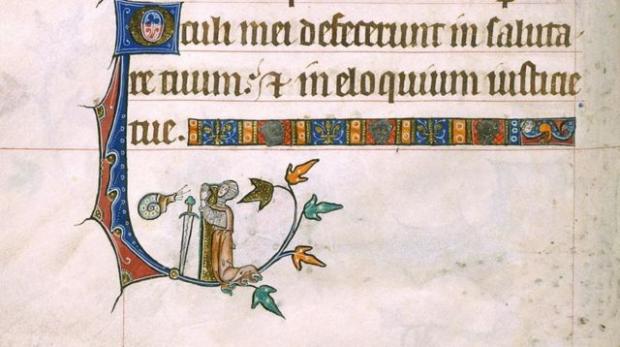 Oculi mei defecerunt in saluta
re tuum: & in eloquium iusticie
tue.